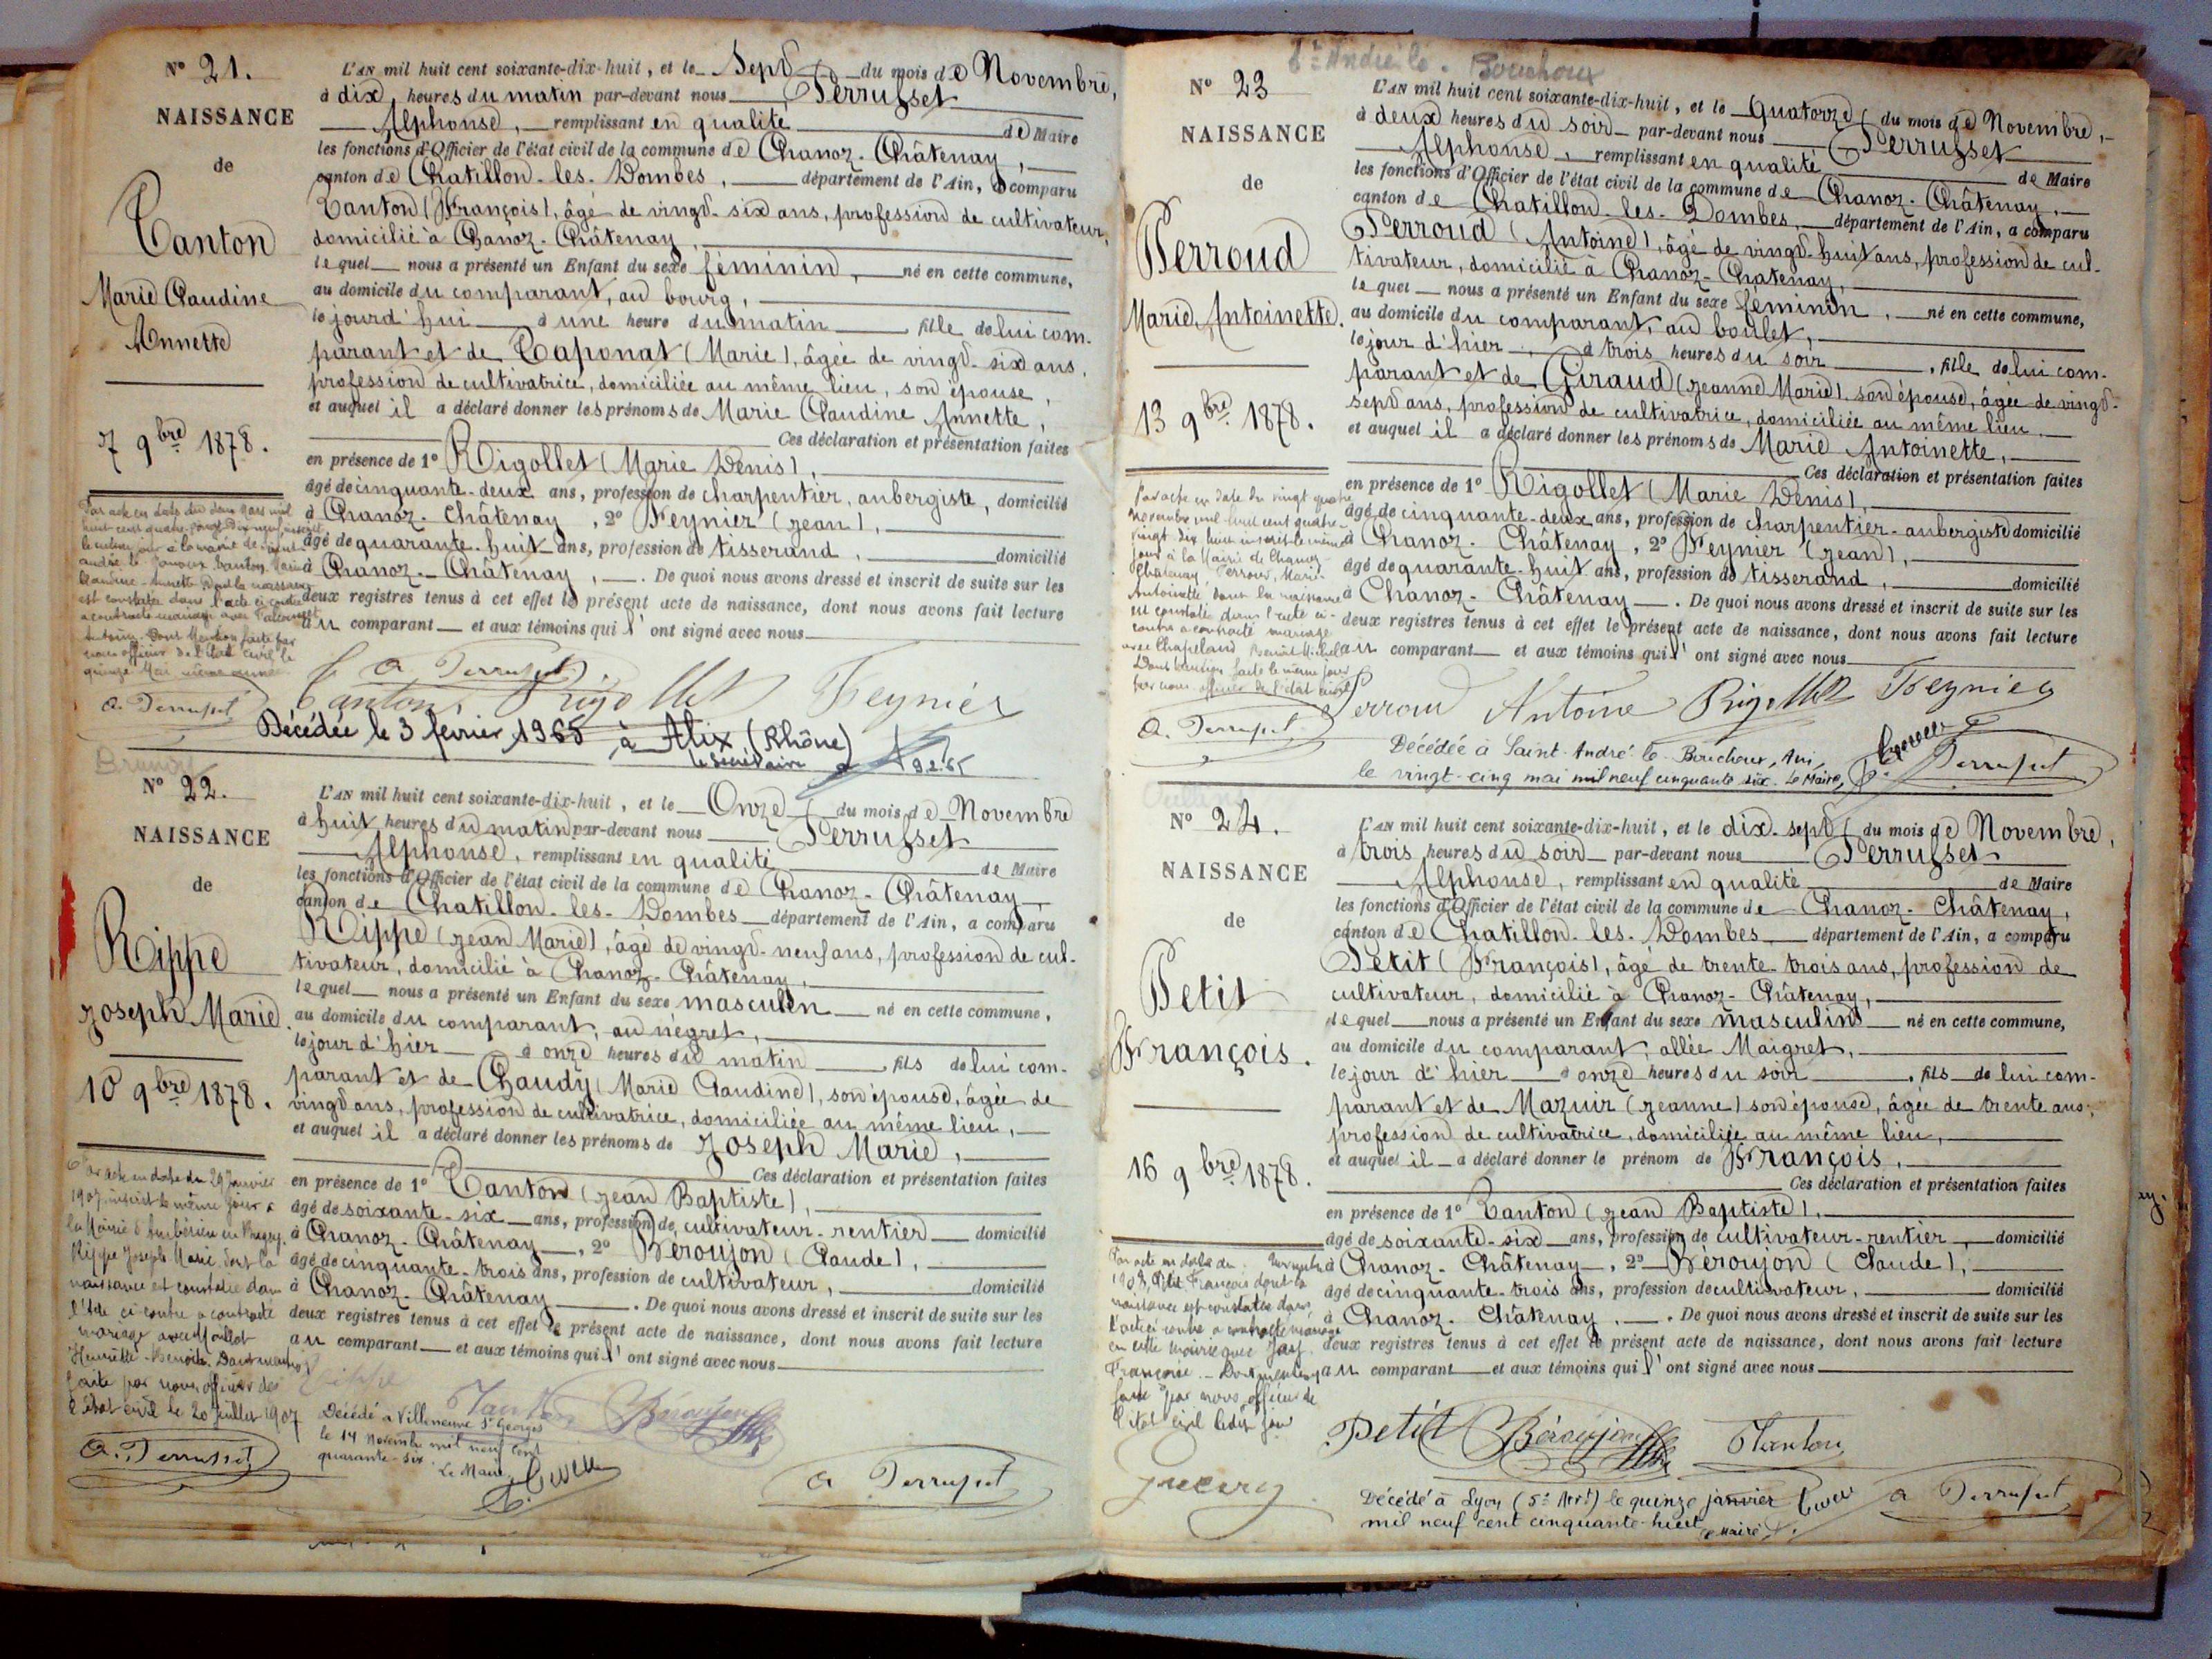 N° 21.
NAISSANCE
de
Tanton
Marie Claudine
Annette
7 9bre 1878.
L'AN mil huit cent soixante-dix-huit, et le Sept du mois de Novembre,
à dix heures du matin par-devant nous Perrusset
Alphonse, remplissant en qualité de Maire
les fonctions d'Officier de l'état civil de la commune de Chanoz-Châtenay,
canton de Chatillon-les-Dombes, département de l'Ain, a comparu
Tanton (François), âgé de vingt-six ans, profession de cultivateur,
domicilié à Chanoz-Châtenay,
lequel nous a présenté un Enfant du sexe féminin, né en cette commune,
au domicile du comparant, au bourg,
lejourd'hui à une heure du matin fille de lui com-
parant et de Taponat (Marie), âgée de vingt-six ans,
profession de cultivatrice, domiciliée au même lieu, son épouse,
et auquel il a déclaré donner les prénoms de Marie Claudine Annette,
Ces déclaration et présentation faites
en présence de 1° Rigollet (Marie Denis),
âgé de cinquante-deux ans, profession de charpentier, aubergiste, domicilié
à Chanoz-Châtenay, 2° Feynier (Jean),
âgé de quarante-huit ans, profession de tisserand, domicilié
à Chanoz-Châtenay, . De quoi nous avons dressé et inscrit de suite sur les
deux registres tenus à cet effet le présent acte de naissance, dont nous avons fait lecture
au comparant et aux témoins qui l'ont signé avec nous
Par acte en date du
huit cent quatre-vingt-dix-neuf, inscrit
le même jour à la mairie de Saint-
André le Tanton Marie
Claudine Annette dont la naissance
est constatée dans l'acte ci-contre
a contracté mariage avec
Antoine. Dont Mention faite par
nous officier de l'état civil le
quinze Mai même année
A. Perrusset
A Perrusset
Tanton Rigollet Feynier
Décédée le 3 février 1965 à Alix (Rhône)
Le Secrétaire
N° 22.
NAISSANCE
de
Rippe
Joseph Marie.
10 9bre 1878.
L'AN mil huit cent soixante-dix-huit, et le Onze du mois de Novembre
à huit heures du matin par-devant nous Perrusset
Alphonse, remplissant en qualité de Maire
les fonctions d'Officier de l'état civil de la commune de Chanoz-Châtenay,
canton de Chatillon-les-Dombes département de l'Ain, a comparu
Rippe (Jean Marie), âgé de vingt-neuf ans, profession de cul-
tivateur, domicilié à Chanoz-Châtenay,
lequel nous a présenté un Enfant du sexe masculin né en cette commune,
au domicile du comparant, au négret,
lejour d'hier à onze heures du matin fils de lui com-
parant et de Chaudy (Marie Claudine), son épouse, âgée de
vingt ans, profession de cultivatrice, domiciliée au même lieu,
et auquel il a déclaré donner les prénoms de Joseph Marie,
Ces déclaration et présentation faites
en présence de 1° Tanton (Jean Baptiste),
âgé de soixante-six ans, profession de cultivateur-rentier domicilié
à Chanoz-Châtenay, 2° Béroujon (Claude),
âgé de cinquante-trois ans, profession de cultivateur, domicilié
à Chanoz-Châtenay . De quoi nous avons dressé et inscrit de suite sur les
deux registres tenus à cet effet le présent acte de naissance, dont nous avons fait lecture
au comparant et aux témoins qui l'ont signé avec nous
Par acte en date du 29 Janvier
1907, inscrit le même jour à
la Mairie d'Ambérieu en Bugey,
Rippe Joseph Marie dont la
naissance est constatée dans
l'acte ci-contre a contracté
mariage avec
Henriette Benoite. Dont mention
faite par nous, officier de
l'état civil le 20 juillet 1907
A. Perrusset
Rippe
Tanton Béroujon
Décédé à Villeneuve St Georges
le 14 Novembre mil neuf cent
quarante-six. Le Maire,
A Perrusset
St André le Bouchoux
N° 23
NAISSANCE
de
Perroud
Marie Antoinette.
13 9bre 1878.
L'AN mil huit cent soixante-dix-huit, et le Quatorze du mois de Novembre,
à deux heures du soir par-devant nous Perrusset
Alphonse, remplissant en qualité de Maire
les fonctions d'Officier de l'état civil de la commune de Chanoz-Châtenay,
canton de Chatillon-les-Dombes, département de l'Ain, a comparu
Perroud (Antoine), âgé de vingt-huit ans, profession de cul-
tivateur, domicilié à Chanoz-Chatenay,
lequel nous a présenté un Enfant du sexe féminin, né en cette commune,
au domicile du comparant, au boulet,
lejour d'hier, à trois heures du soir, fille de lui com-
parant et de Giraud (Jeanne Marie), son épouse, âgée de vingt-
sept ans, profession de cultivatrice, domiciliée au même lieu,
et auquel il a déclaré donner les prénoms de Marie Antoinette,
Ces déclaration et présentation faites
en présence de 1° Rigollet (Marie Denis),
âgé de cinquante-deux ans, profession de charpentier-aubergiste domicilié
à Chanoz-Châtenay, 2° Feynier (Jean),
âgé de quarante-huit ans, profession de tisserand, domicilié
à Chanoz-Châtenay . De quoi nous avons dressé et inscrit de suite sur les
deux registres tenus à cet effet le présent acte de naissance, dont nous avons fait lecture
au comparant et aux témoins qui l'ont signé avec nous
Par acte en date du vingt quatre
Novembre mil huit cent quatre-
vingt dix huit inscrit le même
jour à la Mairie de Chanoz-
Châtenay, Perroud, Marie-
Antoinette dont la naissance
est constatée dans l'acte ci-
contre a contracté mariage
avec Chapeland Benoît Michel
Dont mention faite le même jour
par nous officier de l'état civil
A. Perrusset
Perroud Antoine Rigollet Feynier
Décédée à Saint-André-le-Bouchoux, Ain,
le vingt-cinq mai mil neuf cinquante six. Le Maire,
A Perrusset
N° 24.
NAISSANCE
de
Petit
François.
16 9bre 1878.
L'AN mil huit cent soixante-dix-huit, et le dix-sept du mois de Novembre,
à trois heures du soir par-devant nous Perrusset
Alphonse, remplissant en qualité de Maire
les fonctions d'Officier de l'état civil de la commune de Chanoz-Châtenay,
canton de Chatillon-les-Dombes département de l'Ain, a comparu
Petit (François), âgé de trente-trois ans, profession de
cultivateur, domicilié à Chanoz-Châtenay,
lequel nous a présenté un Enfant du sexe masculin né en cette commune,
au domicile du comparant, allée Maigret,
lejour d'hier à onze heures du soir, fils de lui com-
parant et de Mazuir (Jeanne) son épouse, âgée de trente ans,
profession de cultivatrice, domiciliée au même lieu,
et auquel il a déclaré donner le prénom de François,
Ces déclaration et présentation faites
en présence de 1° Tanton (Jean Baptiste),
âgé de soixante-six ans, profession de cultivateur-rentier, domicilié
à Chanoz-Châtenay, 2° Béroujon (Claude),
âgé de cinquante-trois ans, profession de cultivateur, domicilié
à Chanoz-Châtenay, . De quoi nous avons dressé et inscrit de suite sur les
deux registres tenus à cet effet le présent acte de naissance, dont nous avons fait lecture
au comparant et aux témoins qui l'ont signé avec nous
Par acte en date du
Petit François dont la
naissance est constatée dans
l'acte ci-contre a contracté mariage
en cette mairie avec
Françoise. Dont mention
faite par nous officier de
l'état civil ledit jour
Petit Béroujon Tanton
Décédé à Lyon (5e Arrt) le quinze janvier
mil neuf cent cinquante-huit
Le Maire,
A Perrusset